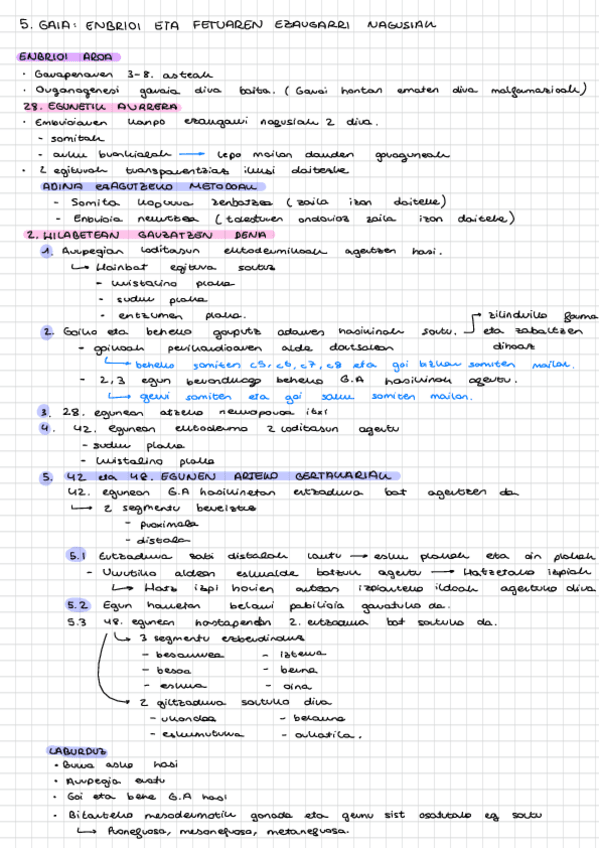 5. GAIA: ENBRIOI ETA FETUAREN EZAUGARRI NAGUSIAK
ENBRIOI AROA
· Garapenaren 3-8. asteak
· Organogenesi garaia dira baita. (Garai hontan ematen dira malformazioak)
28. EGUNETIK AURRERA
· Enbrioiaren kanpo ezaugarri nagusiak 2 dira.
- somitak
- arku brankialak → lepo mailan dauden goraguneak
· 2 egiturak transparentziaz ikusi daitezke
ADINA EZAGUTZEKO METODOAK
- Somita kopurua zenbatzea (zaila izan daiteke)
- Enbrioia neurtzea (tolesturen ondorioz zaila izan daiteke)
2. HILABETEAN GAUZATZEN DENA
1. Aurpegian loditasun ektodermikoak agertzen hasi.
↳ Hainbat egitura sortuz
- kristalino plaka
- sudur plaka
- entzumen plaka.
2. Goiko eta beheko gorputz adarren hasikinak sortu. → zilindriko forma eta zabaltzen dihoaz
- goikoak perikardioaren alde dortsalean
↳ beheko somiten c5, c6, c7, c8 eta goi bizkar somiten mailan.
- 2, 3 egun beranduago beheko G.A hasikinak agertu.
↳ gerri somiten eta goi sakru somiten mailan.
3. 28. egunean atzeko neuroporoa itxi
4. 42. egunean ektodermo 2 loditasun agertu
- sudur plaka
- kristalino plaka
5. 42 eta 48. EGUNEN ARTEKO GERTAKARIAK
42. egunean G.A hasikinetan ertzadura bat agertzen da
↳ 2 segmentu bereiztuz
- proximala
- distala
5.1 Ertzadura zati distalak lautu → esku plakak eta oin plakak
- Urrutiko aldean eskualde batzuk agertu → Hatzetako izpiak
↳ Hatz izpi horien artean izpiarteko ildoak agertuko dira
5.2 Egun hauetan belarri pabilioia garatuko da.
5.3 48. egunean hastapenean 2. ertzadura bat sortuko da.
↳ 3 segmentu ezberdinduz
- besaurrea - izterra
- besoa - berna
- eskua - oina
→ 2 giltzadura sortuko dira
- ukondoa - belauna
- eskumuturra - orkatila.
LABURDUZ
· Burua asko hasi
· Aurpegia eratu
· Goi eta behe G.A hasi
· Bitarteko mesodermotik gonada eta gernu sist osatutako eg sortu
↳ Pronefrosa, mesonefrosa, metanefrosa.